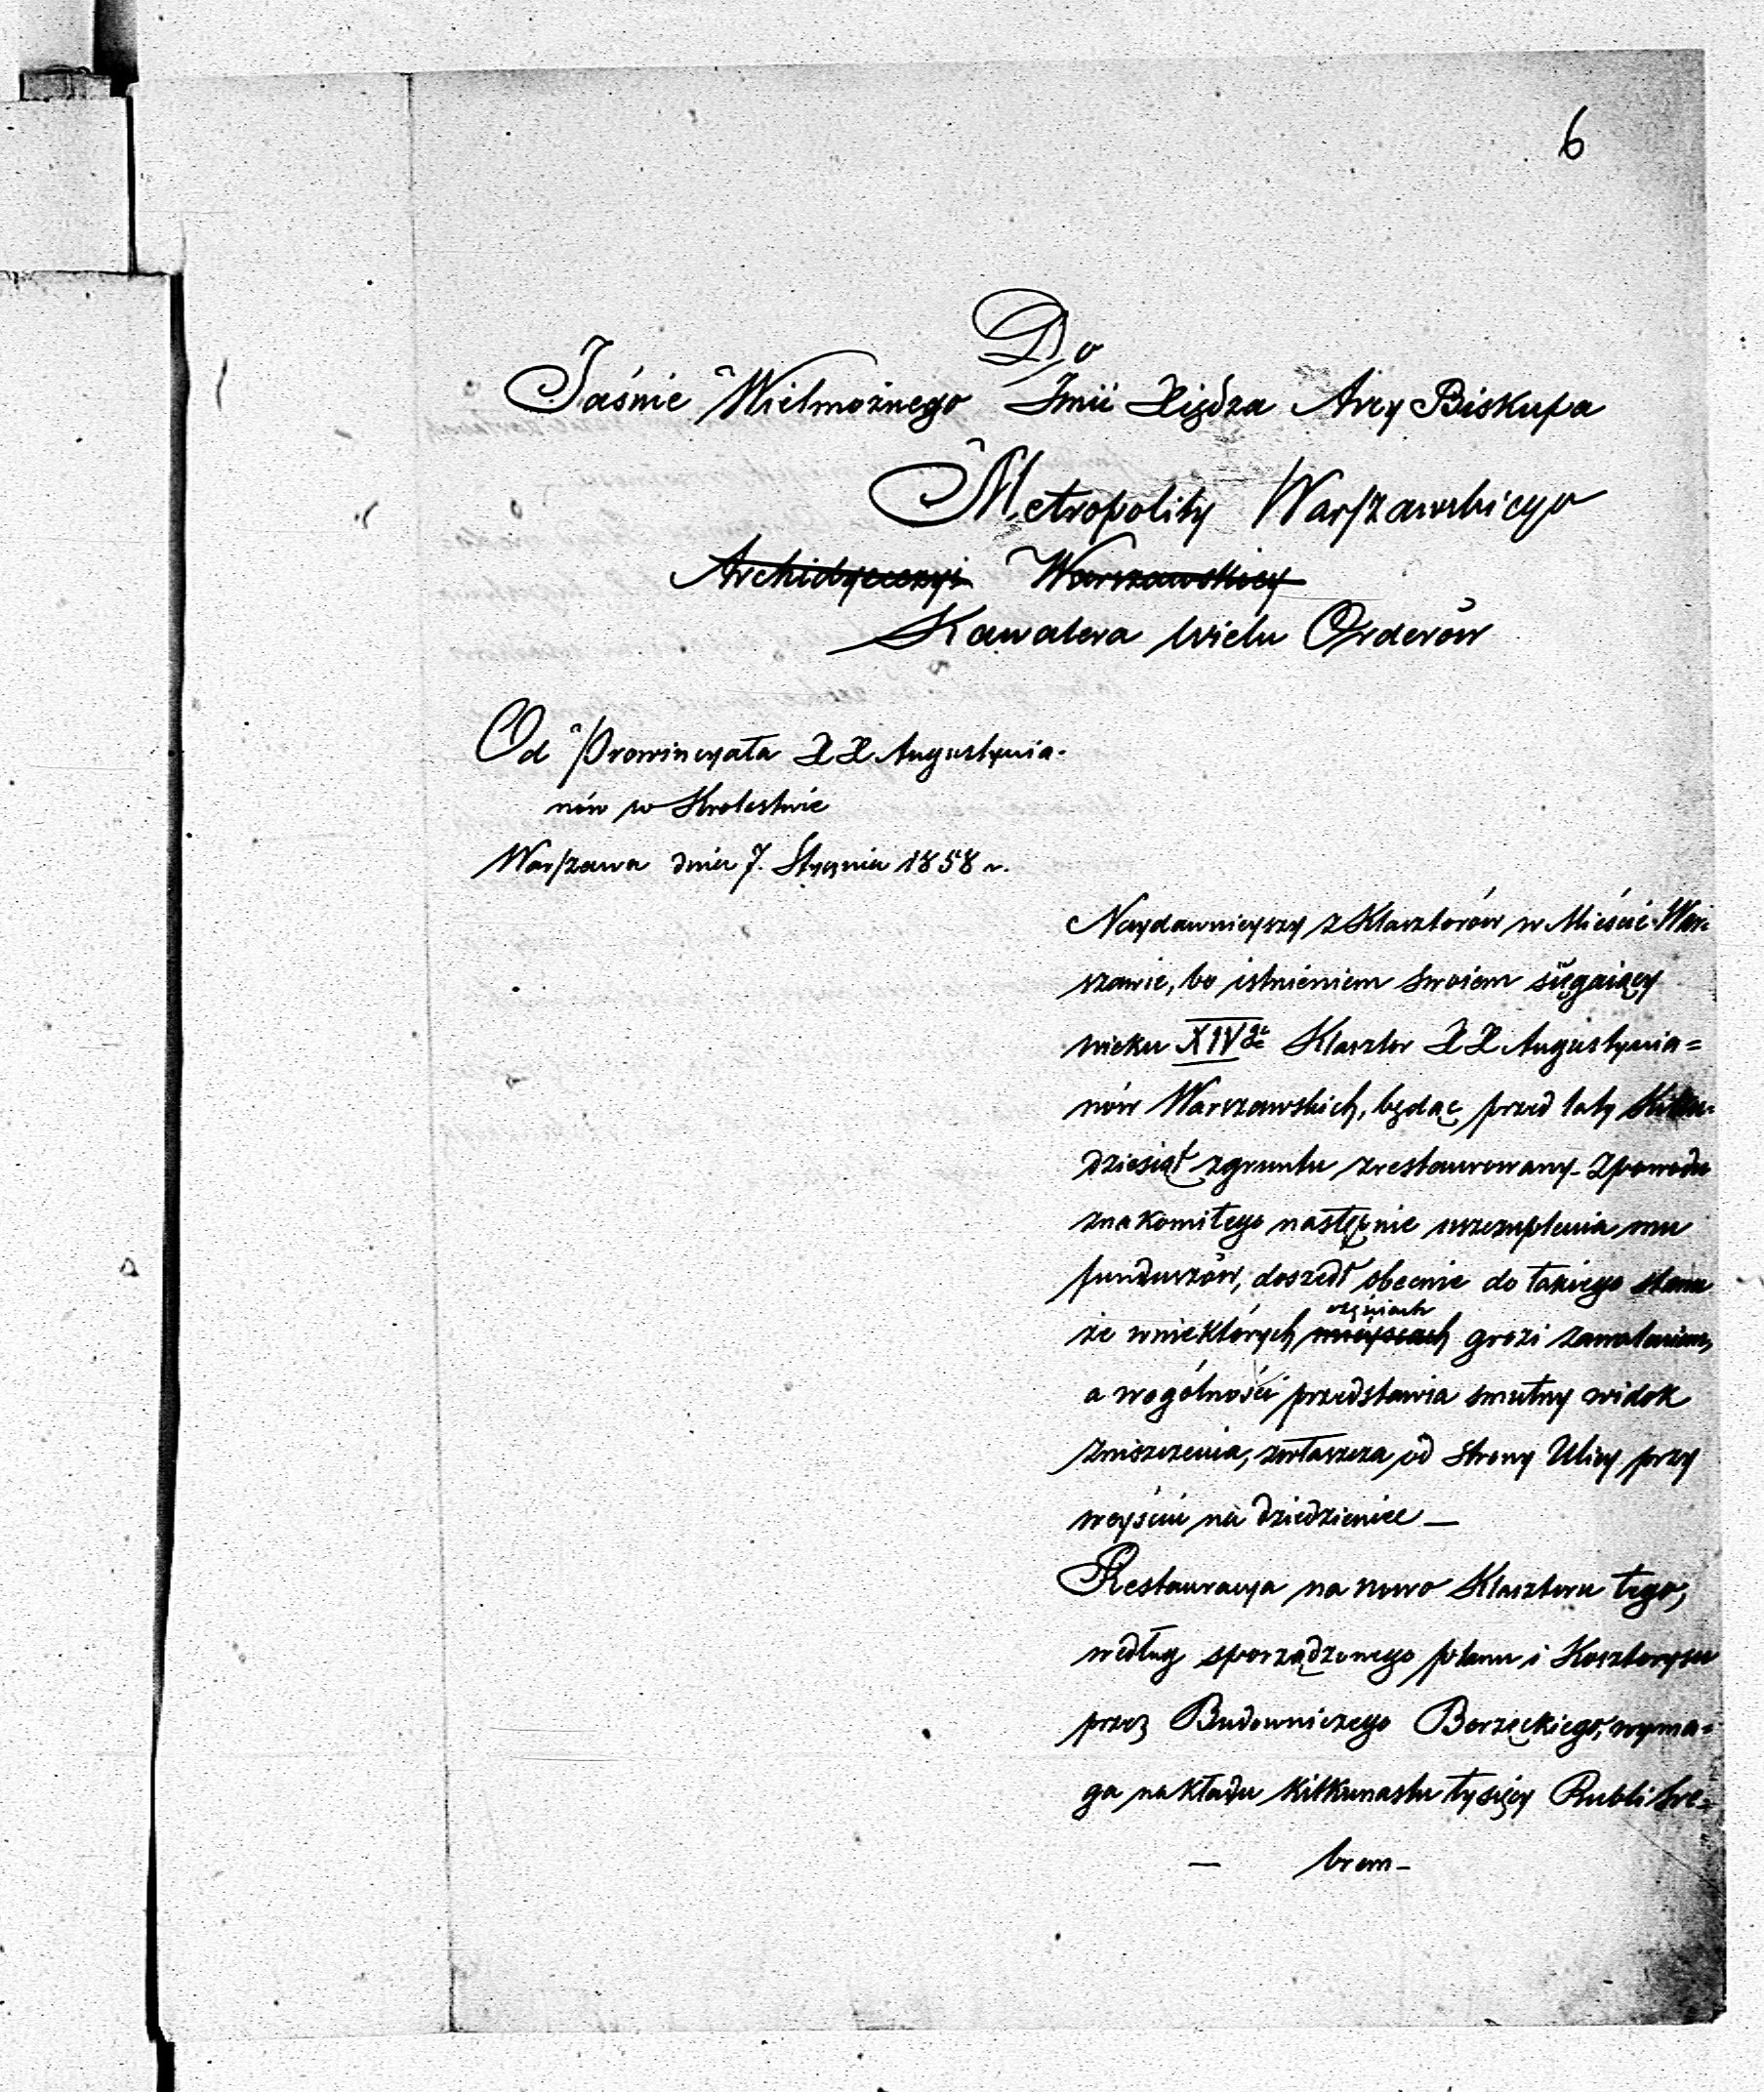 6
Do
Jaśnie Wielmożnego Jmii Xiędza Arcy Biskupa
Metropolity Warszawskiego
Archidyecezyi Warszawskiey
Kawalera wielu Orderów
Od Prowincyała XX Augustynia-
nów w Krolestwie
Warszawa dnia 7. Stycznia 1858 r.
Naydawnieyszy z Klasztorów w Mieście War-
szawie, bo istnieniem swoiem sięgaiący
wieku XIVgo Klasztor XX Augustynia=
nów Warszawskich, będąc przed laty kilku-
dziesiąt zgruntu zrestaurowany- Zpowodu
znakomitego następnie uszczuplenia mu
funduszów, doszedł obecnie do takiego stanu
częściach
że wniektórych mieyscach grozi zawaleniem,
a wogólności przedstawia smutny widok
zniszczenia, zwłaszcza od strony Ulicy przy
weyściu na dziedziniec —
Restauracya na nowo Klasztoru tego,
według sporządzonego planu i Kosztorysu
przez Budowniczego Borzęckiego, wyma=
ga nakładu kilkunastu tysięcy Rubli sre=
— brem-